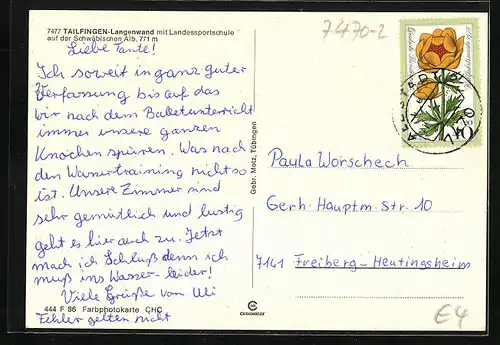 7477 TAILFINGEN-Langenwand mit Landessportschule
auf der Schwäbischen Alb, 771 m
Liebe Tante!
Ich soweit in ganz guter
Verfassung bis auf das
wir nach dem Balletunterricht
immer unsere ganzen
Knochen spüren. Was nach
den Wassertraining nicht so
ist. Unsere Zimmer sind
sehr gemütlich und lustig
geht es hier auch zu. Jetzt
mach ich Schluß denn ich
muß ins Wasser - leider!
Viele Grüße von Uli
Fehler gelten nicht
444 F 86 Farbphotokarte CHC
Gebr. Metz, Tübingen
7470-2
Deutsche Bundespost
40
20
ALBSTADT
Paula Worschech
Gerh. Hauptm. Str. 10
7141 Freiberg-Heutingsheim
€4